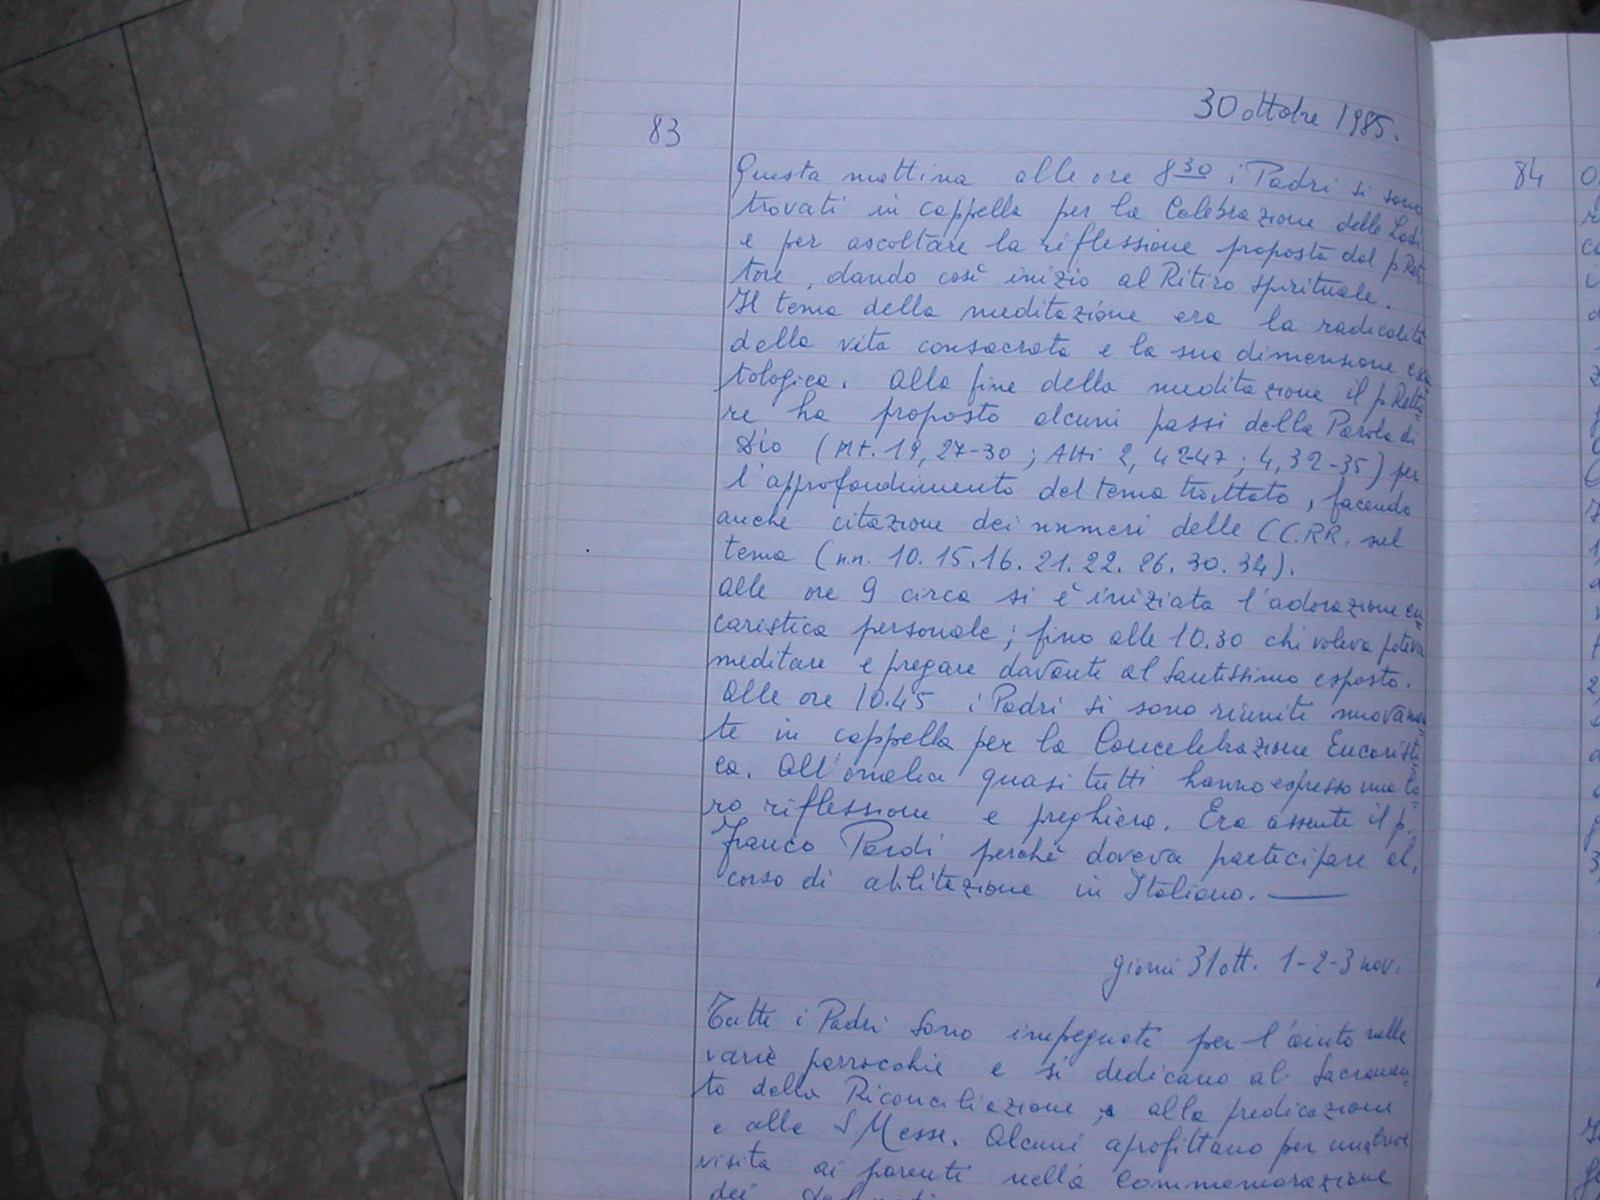 83
30 ottobre 1985.
Questa mattina alle ore 8 30 i Padri si sono
trovati in cappella per la Celebrazione delle Lodi
e per ascoltare la riflessione proposta dal p. Ret-
tore, dando così inizio al Ritiro Spirituale.
Il tema della meditazione era la radicalità
della vita consacrata e la sua dimensione esca
tologica. Alla fine della meditazione il p. Retto-
re ha proposto alcuni passi della Parola di
Dio (Mt. 19, 27-30; Atti 2, 42-47; 4, 32-35) per
l'approfondimento del tema trattato, facendo
anche citazione dei numeri delle CC.RR. sul
tema (nn. 10. 15. 16. 21. 22. 26. 30. 34).
Alle ore 9 circa si è iniziata l'adorazione eu-
carestica personale; fino alle 10.30 chi voleva poteva
meditare e pregare davanti al Santissimo esposto.
Alle ore 10.45 i Padri si sono riuniti nuovamen-
te in cappella per la Concelebrazione Eucaristi-
ca. All'omelia quasi tutti hanno espresso una lo-
ro riflessione e preghiera. Era assente il p.
Franco Pardi perchè doveva partecipare al
corso di abilitazione in Italiano.
giorni 31 ott. 1-2-3 nov.
Tutti i Padri sono impegnati per l'aiuto nelle
varie parrocchie e si dedicano al Sacramen-
to della Riconciliazione, alla predicazione
e alle S Messe. Alcuni aprofittano per una breve
visita ai parenti nella Commemorazione
dei
84